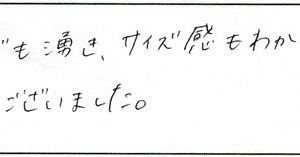 も湧き、サイズ感もわか
ございました。